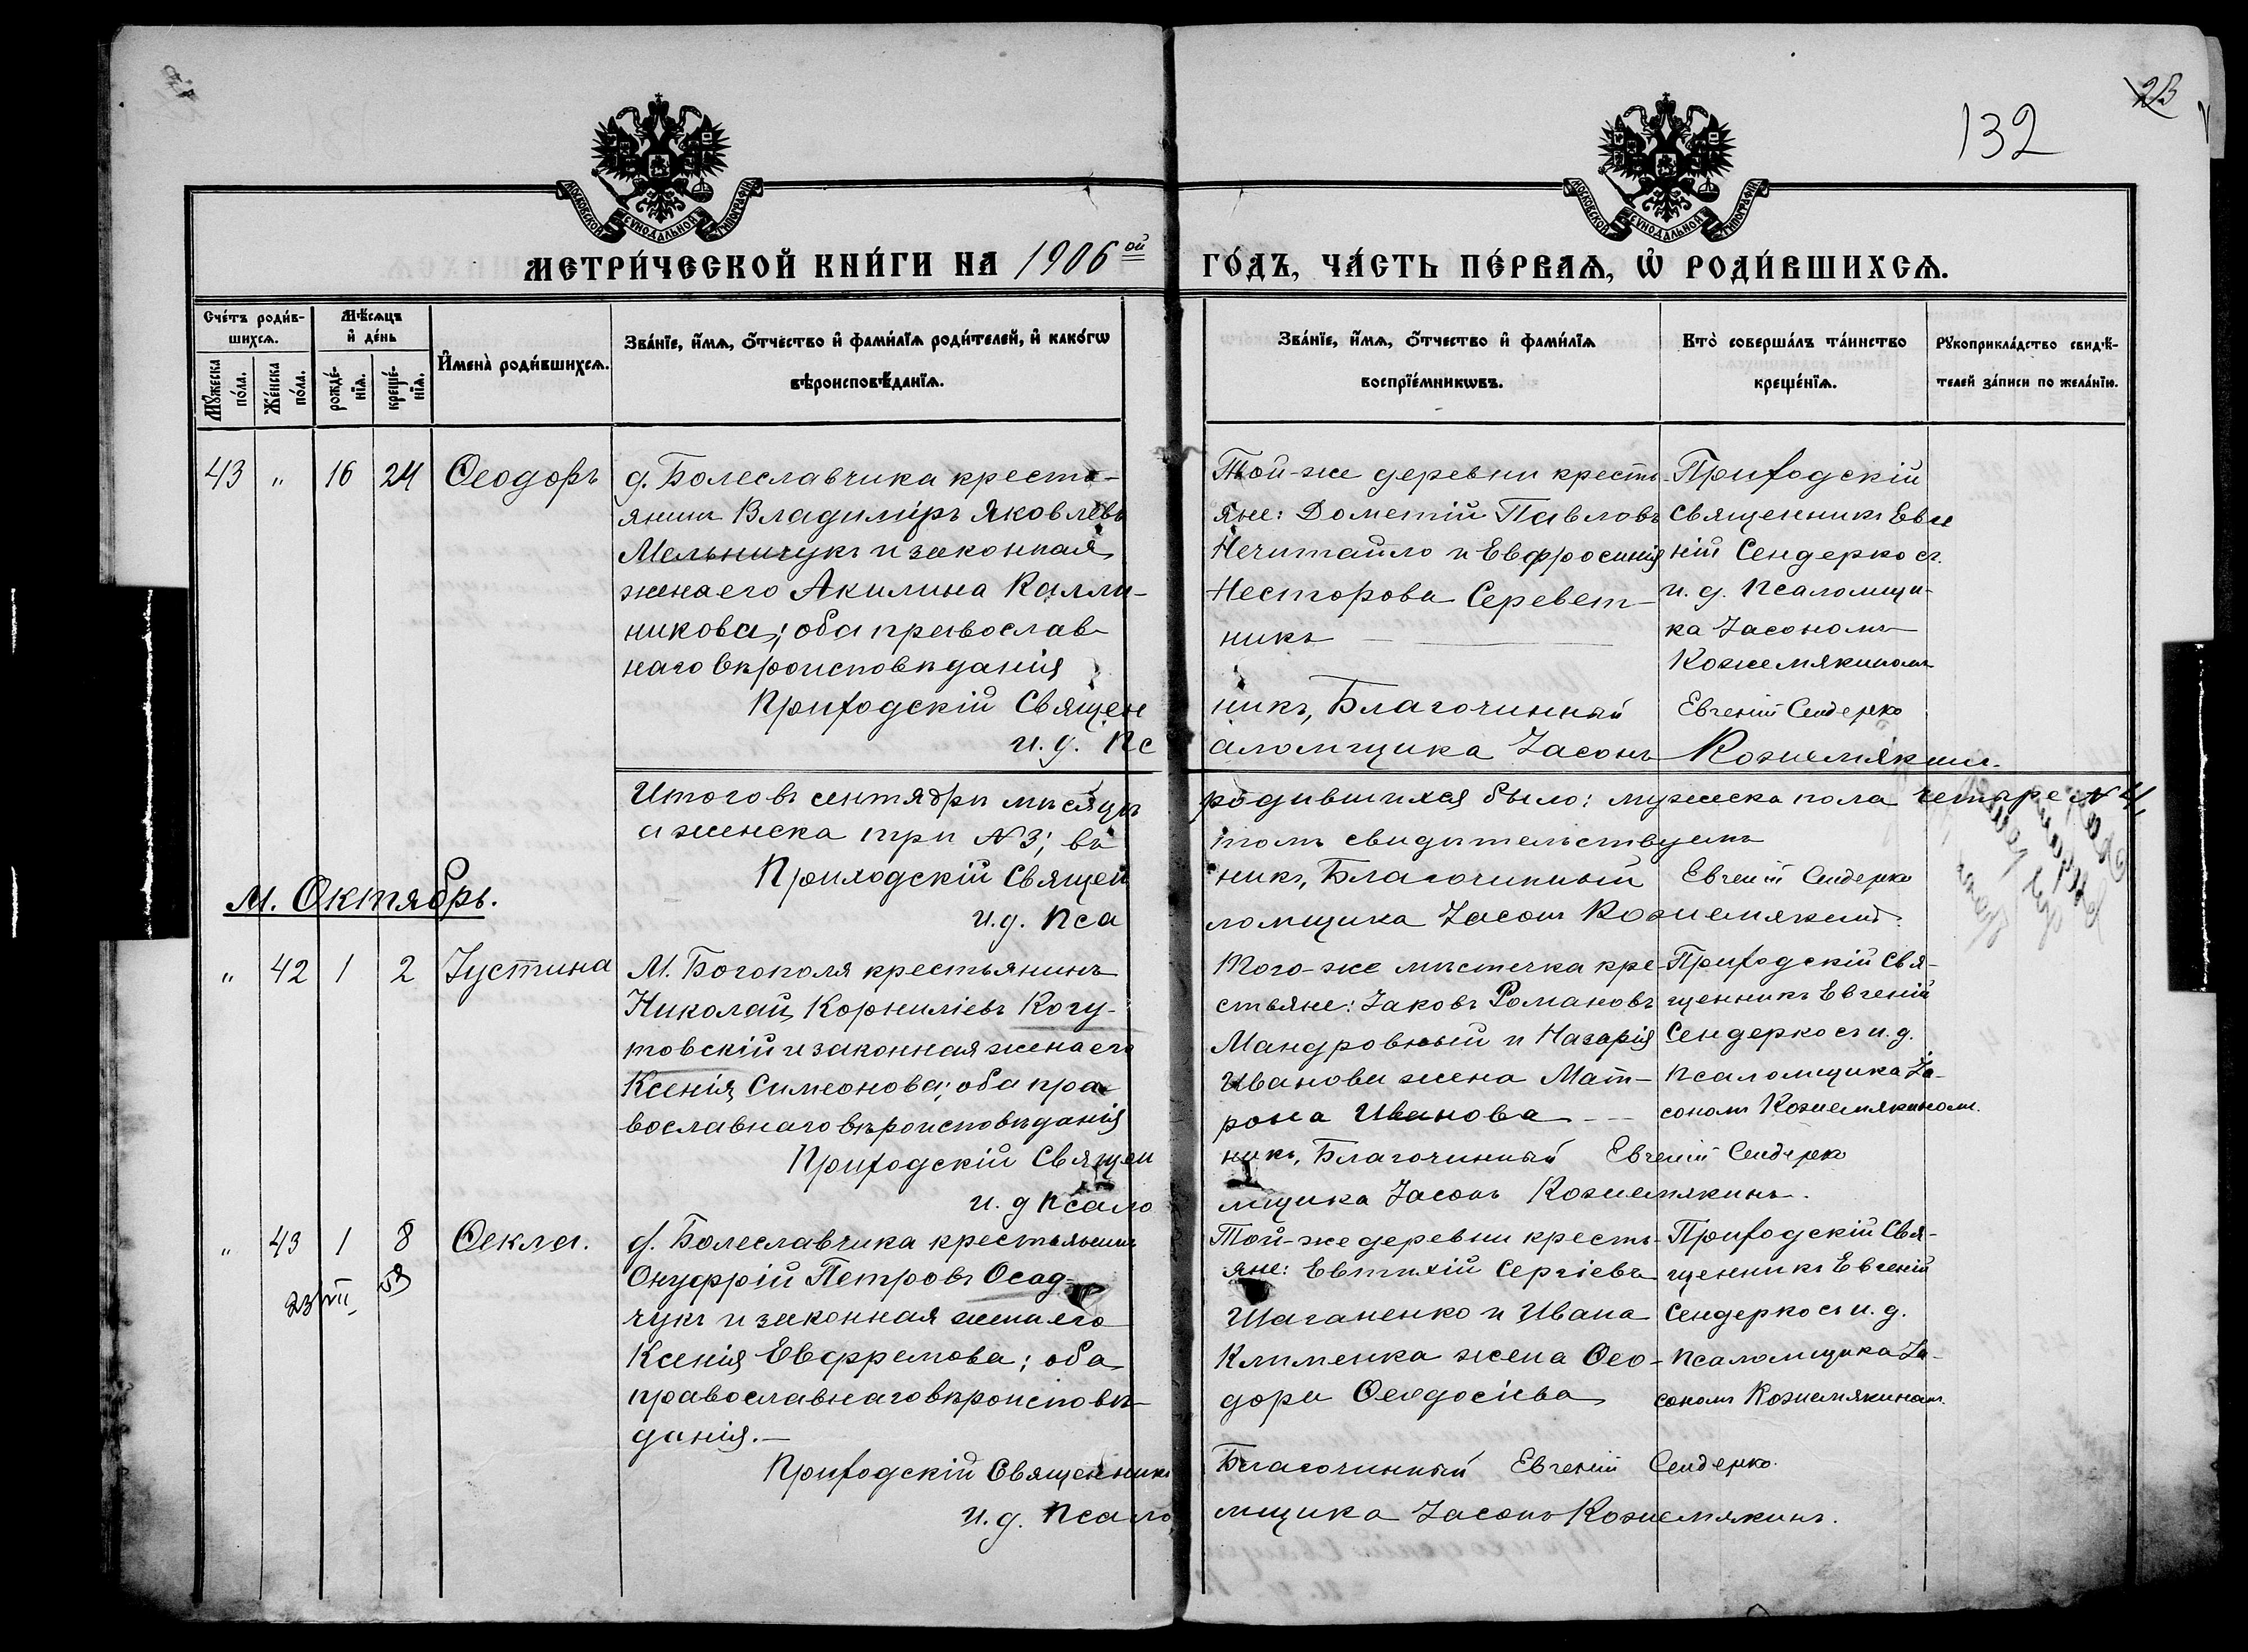 132
23
МОСКОВСКОЙ СѴНОДАЛЬНОЙ ТИПОГРАФІИ
МОСКОВСКОЙ СѴНОДАЛЬНОЙ ТИПОГРАФІИ
МЕТРИ́ЧЕСКОЙ КНИ́ГИ НА 1906ой ГО́ДЪ, ЧА́СТЬ ПЕ́РВАѦ, Ѡ҆ РОДИ́ВШИХСѦ.
Сче́тъ роди́в-
шихсѧ.
Мꙋ́жеска по́ла.
Же́нска по́ла.
Мѣ́сѧцъ
и҆ де́нь
рожде́-
нїѧ.
креще́-
нїѧ.
И҆мена̀ роди́вшихсѧ.
Зва́нїе, и҆́мѧ, ѻ҆́тчество и҆ фами́лїѧ роди́телей, и҆ како́гѡ
вѣроисповѣ́данїѧ.
Зва́нїе, и҆́мѧ, ѻ҆́тчество и҆ фами́лїѧ
воспрїе́мникѡвъ.
Кто̀ соверша́лъ та́инство
креще́нїѧ.
Рꙋкоприкла́дство свидѣ́-
телей за́писи по жела́нїю.
43 " 16 24 Ѳеодоръ
д. Болеславчика кресть-
янинъ Владиміръ Яковлевъ
Мельничукъ и законная
жена его Акилина Калли-
никова; оба православ-
наго вѣроисповѣданія
Той-же деревни кресть-
яне: Дометій Павловъ
Нечитайло и Евфросинія
Несторова Серевет-
никъ
Приходскій
Священникъ Евге
ній Сендерко съ
и. д. псаломщи-
ка Іасономъ
Кожемякиномъ
Приходскій Священникъ, Благочинный Евгеній Сендерко
и. д. псаломщика Іасонъ Кожемякинъ.
Итого въ сентябрѣ мѣсяцѣ родившихся было: мужеска пола четыре № 4,
а женска три № 3; въ томъ свидѣтельствуемъ
Приходскій Священникъ, Благочинный Евгеній Сендерко
и. д. псаломщика Іасонъ Кожемякинъ.
М. Октябрь.
" 42 1 2 Іустина
М. Богополя крестьянинъ
Николай Корниліевъ Когу-
товскій и законная жена его
Ксенія Симеонова; оба пра-
вославнаго вѣроисповѣданія
Того-же мѣстечка кре-
стьяне: Іаковъ Романовъ
Мандровный и Назарія
Иванова жена Мат-
рона Иванова
Приходскій Свя-
щенникъ Евгеній
Сендерко съ и. д.
псаломщика Іа-
сономъ Кожемякиномъ.
Приходскій Священникъ, Благочинный Евгеній Сендерко
и. д псаломщика Іасонъ Кожемякинъ.
" 43 1 8 Ѳекла.
23 VII 53
д. Болеславчика крестьянинъ
Онуфрій Петровъ Осад-
чукъ и законная жена его
Ксенія Евфремова; оба
православнаго вѣроисповѣ-
данія.
Той-же деревни кресть-
яне: Евтихій Сергіевъ
Шаганенко и Ивана
Клименка жена Ѳео-
дора Ѳеодосіева
Приходскій Свя-
щенникъ Евгеній
Сендерко съ и. д.
псаломщика Іа-
сономъ Кожемякиномъ.
Приходскій Священникъ Благочинный Евгеній Сендерко.
и. д. псаломщика Іасонъ Кожемякинъ.